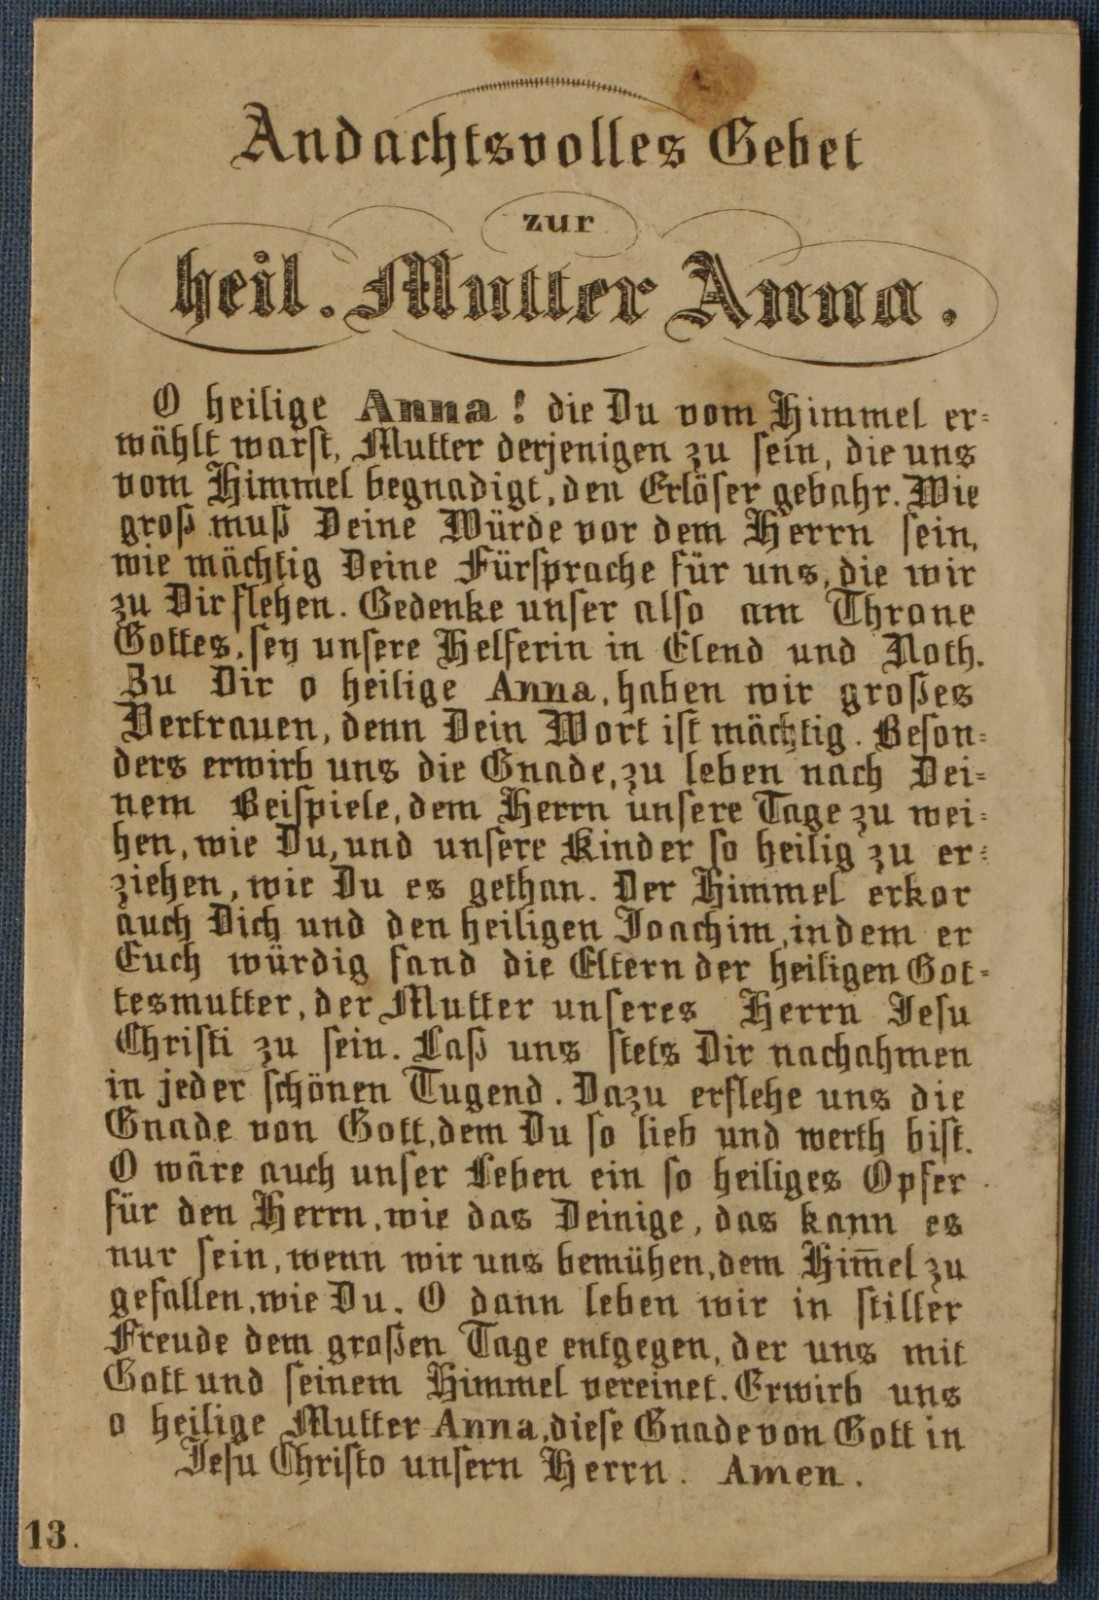 Andachtsvolles Gebet
zur
heil. Mutter Anna.
O heilige Anna! die Du vom Himmel er=
wählt warst, Mutter derjenigen zu sein, die uns
vom Himmel begnadigt, den Erlöser gebahr. Wie
groß muß Deine Würde vor dem Herrn sein,
wie mächtig Deine Fürsprache für uns, die wir
zu Dir flehen. Gedenke unser also am Throne
Gottes, sey unsere Helferin in Elend und Noth.
Zu Dir o heilige Anna, haben wir großes
Vertrauen, denn Dein Wort ist mächtig. Beson=
ders erwirb uns die Gnade, zu leben nach Dei=
nem Beispiele, dem Herrn unsere Tage zu wei=
hen, wie Du, und unsere Kinder so heilig zu er=
ziehen, wie Du es gethan. Der Himmel erkor
auch Dich und den heiligen Joachim, indem er
Euch würdig fand die Eltern der heiligen Got=
tesmutter, der Mutter unseres Herrn Jesu
Christi zu sein. Laß uns stets Dir nachahmen
in jeder schönen Tugend. Dazu erflehe uns die
Gnade von Gott, dem Du so lieb und werth bist.
O wäre auch unser Leben ein so heiliges Opfer
für den Herrn, wie das Deinige, das kann es
nur sein, wenn wir uns bemühen, dem Him̅el zu
gefallen, wie Du. O dann leben wir in stiller
Freude dem großen Tage entgegen, der uns mit
Gott und seinem Himmel vereinet. Erwirb uns
o heilige Mutter Anna, diese Gnade von Gott in
Jesu Christo unsern Herrn. Amen.
13.